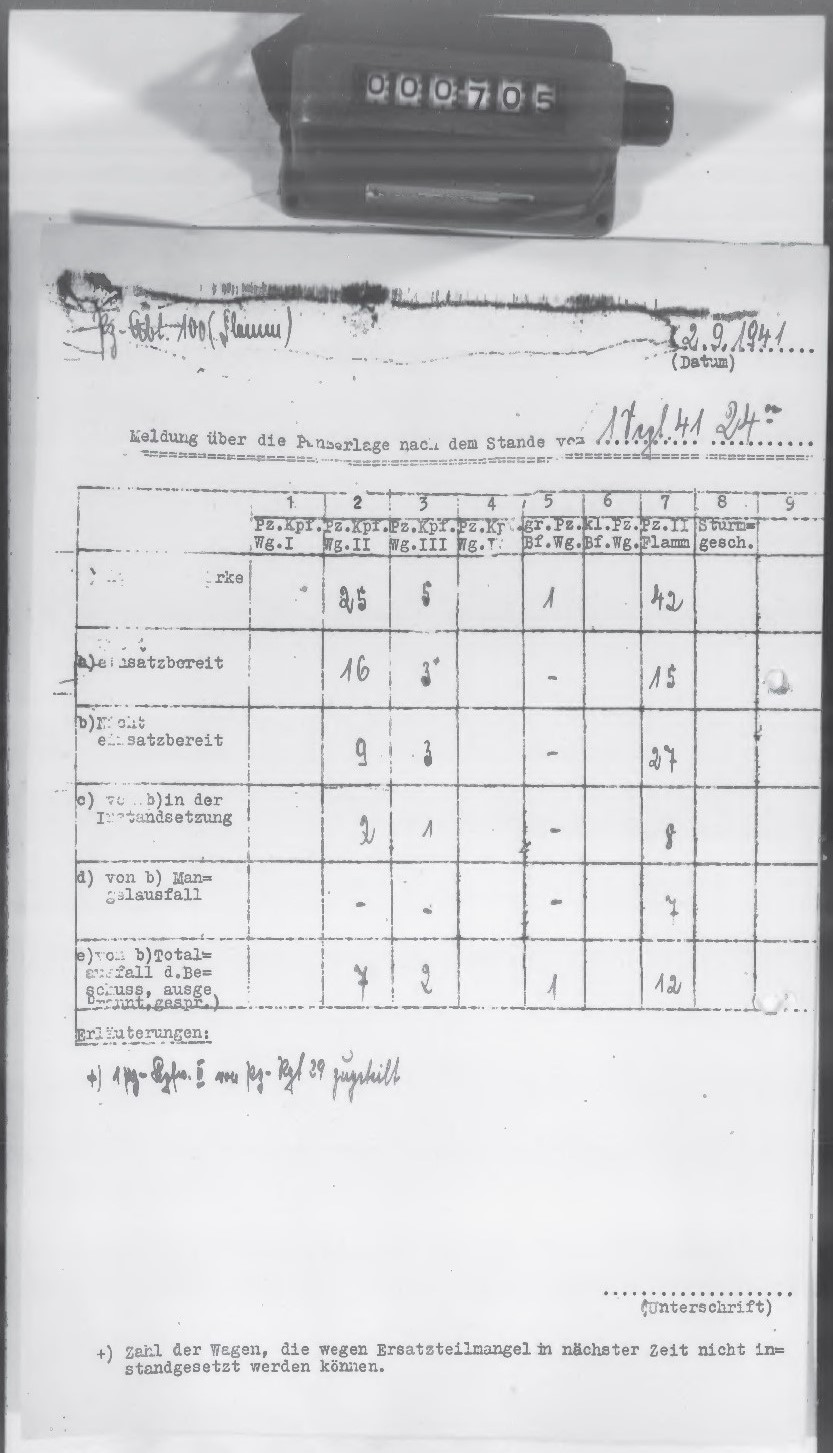 000705
Pz-Abt. 100 (Flamm)
2.9.1941
(Datum)
Meldung über die Panzerlage nach dem Stande vom 1. Sept. 41 24°°
1 2 3 4 5 6 7 8 9
Pz.Kpf. Pz.Kpf. Pz.Kpf. Pz.Kpf. gr.Pz. kl.Pz. Pz.II Sturm=
Wg.I Wg.II Wg.III Wg.IV Bf.Wg. Bf.Wg. Flamm gesch.
rke 25 5 1 42
a)einsatzbereit 16 3+ - 15
b)Nicht
einsatzbereit 9 3 - 27
c) von b)in der
Instandsetzung 2 1 - 8
d) von b) Man=
gelausfall - - - 7
e)von b)Total=
ausfall d.Be=
schuss, ausge
brannt,gespr.) 7 2 1 12
Erläuterungen:
+) 1 Pz-Kpfw. II von Pz-Rgt 29 zugeteilt
(Unterschrift)
+) Zahl der Wagen, die wegen Ersatzteilmangel in nächster Zeit nicht in=
standgesetzt werden können.